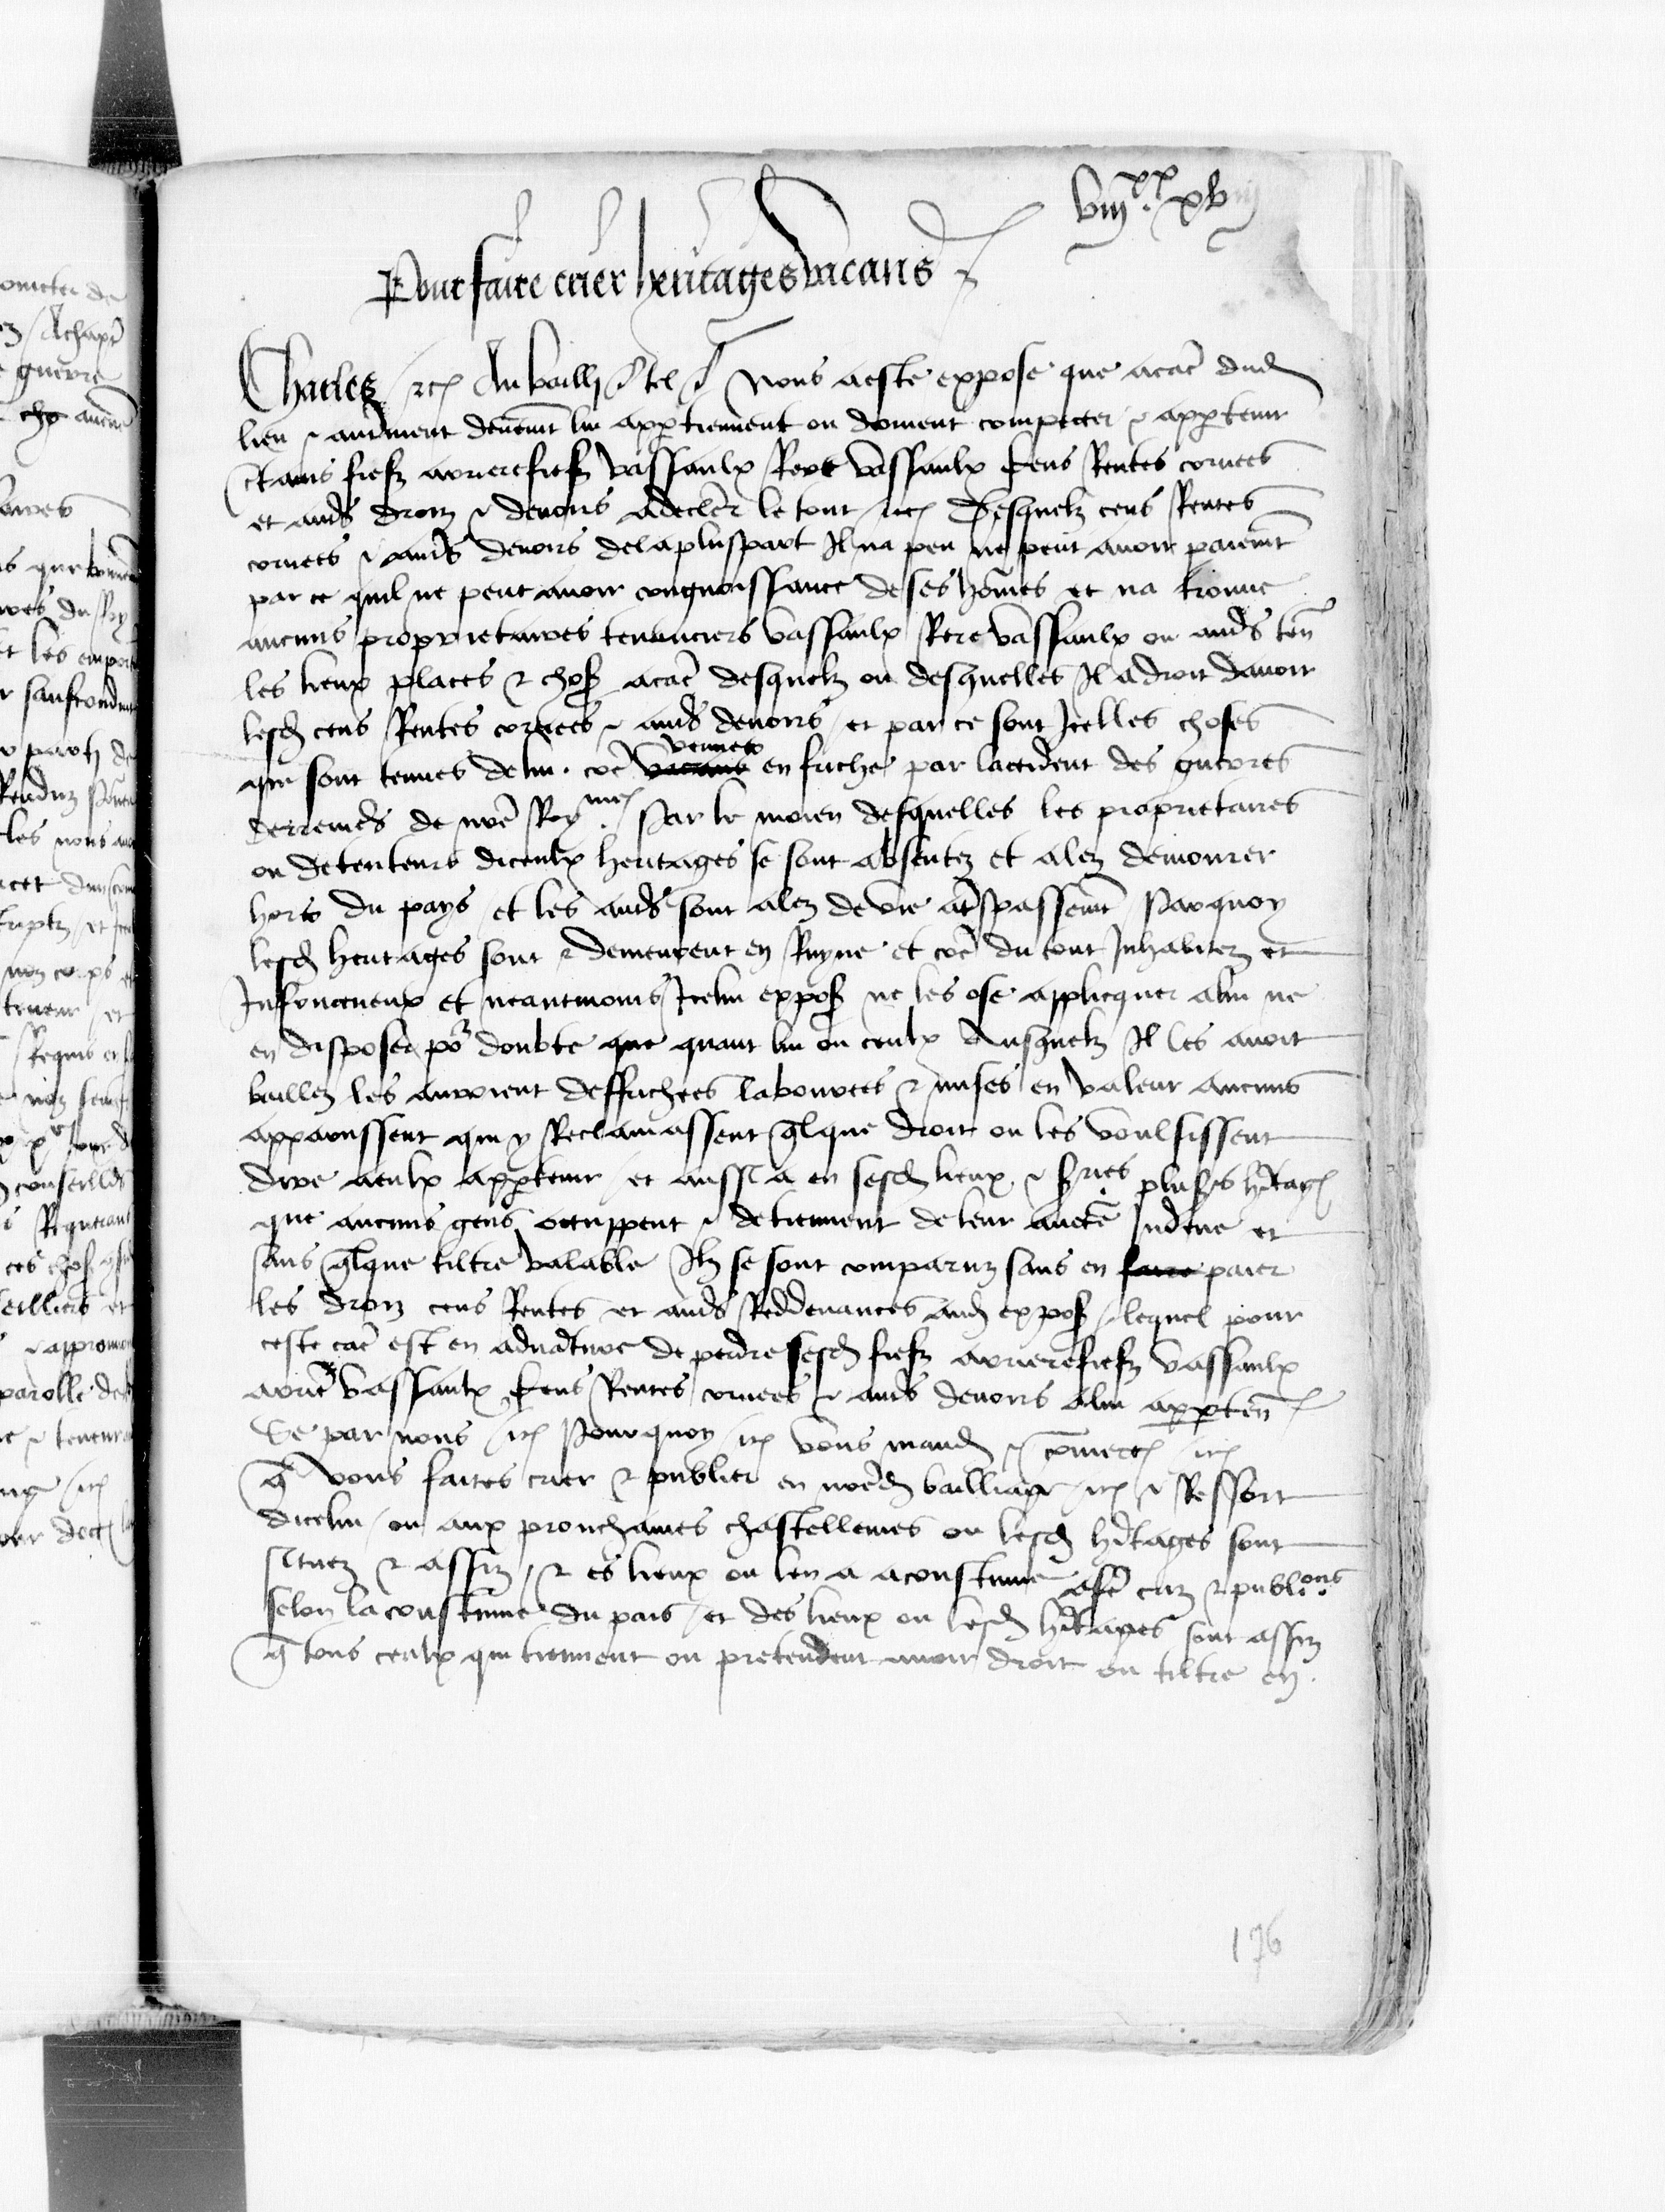 viijxx xvj
Pour faire crier heritages vacans
Charles etc Au bailli de tel etc Nous a este expose que a cause dud
lieu et autrement deuement lui appartiennent ou doivent competter et appartenir
certains fiefz arrierefiefz vassaulx Rere vassaulx Cens Rentes corvees
et autres droiz et devoirs a declerer le tout etc Desquelz cens Rentes
corvees et autres devoirs de la pluspart Il na peu ne peut avoir paiement
par ce quil ne peut avoir congnoissance de ses hommes et na trouve
aucuns proprietaires tenanciers vassaulx Rere vassaulx ou autres ten
les lieux places et choses a cause desquelz ou desquelles Il a droit davoir
lesd cens Rentes corvees et autres devoirs et par ce sont Icelles choses
qui sont tenues de lui comme vacans venues en friche par laccident des guerres
derrenieres de nostre Royme Par le moien desquelles les proprietaires
ou detenteurs diceulx heritages se sont absentez et alez demourer
hors du pays et les autres sont alez de vie a trespassement Parquoy
lesd heritages sont et demeurent en Ruyne et comme du tout Inhabitez et
Infructueux et neantmoins Icelui expos ne les ose applicquer a lui ne
en disposer pour doubte que quant lui ou ceulx Ausquelz Il les avoit
baillez les auroient deffrichees labourees et mises en valeur aucuns
apparussent qui y Reclamassent quelque droit ou les voulsissent
dire a eulx appartenir et aussi a en sesd lieux et plusrs heritages
que aucuns gens occuppent et detiennent de leur aucte Indeue et
sans quelque tiltre valable Ilz se sont emparez sans en faire paier
les droiz cens Rentes et autres Reddevances aud expos lequel pour
ceste cause est en adventure de perdre sesd fiefz arrierefiefz vassaulx
arriere vassaulx Cens Rentes corvees et autres devoirs a lui apparten
Se par nous etc Pourquoy etc vous mandons et commectons etc
que vous faites crier et publier en vostred bailliage etc et Ressort
dicelui ou aux prouchaines chastellenies ou lesd heritages sont
situez et assiz et es lieux ou len a acoustume a faire criz et publions
selon la coustume du pais et des lieux ou lesd heritages sont assiz
que tous ceulx qui tiennent ou pretendent avoir droit ou tiltre en
176